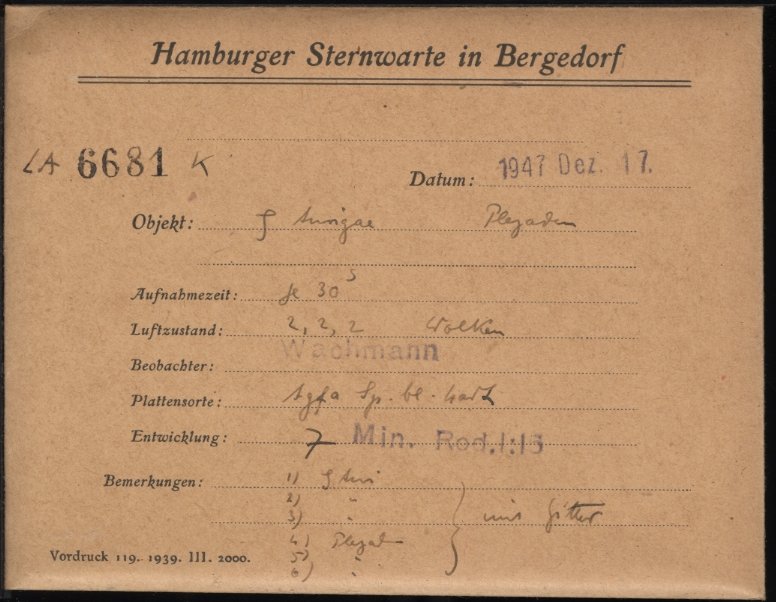 Hamburger Sternwarte in Bergedorf
LA 6681 K
Datum: 1947 Dez. 17.
Objekt: ζ Aurigae Plejaden
Aufnahmezeit: je 30ˢ
Luftzustand: 2, 2, 2 Wolken
Beobachter: Wachmann
Plattensorte: Agfa Sp. bl. hart
Entwicklung: 7 Min. Rod. 1:15
Bemerkungen: 1) ζ Auri
2) "
3) " mit Gitter
4) Plejaden
5)
6) "
Vordruck 119. 1939. III. 2000.